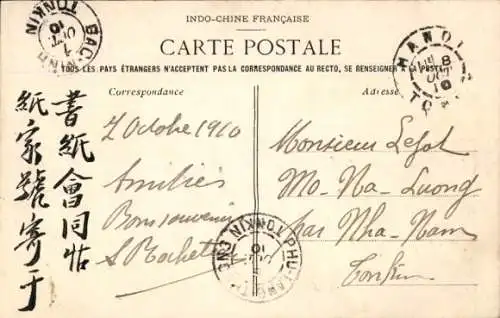 INDO-CHINE FRANÇAISE
CARTE POSTALE
TOUS LES PAYS ÉTRANGERS N'ACCEPTENT PAS LA CORRESPONDANCE AU RECTO, SE RENSEIGNER A LA POSTE
Correspondance
Adresse
BAC-NINH
TONKIN
HANOI
書紙會同
紙家號寄于
7 Octobre 1910
Amitiés
Bons souvenirs
Rochette
Monsieur Lefol
Mo-Na-Luong
par Nha-Nam
Tonkin
PHU-LANG
TONKIN